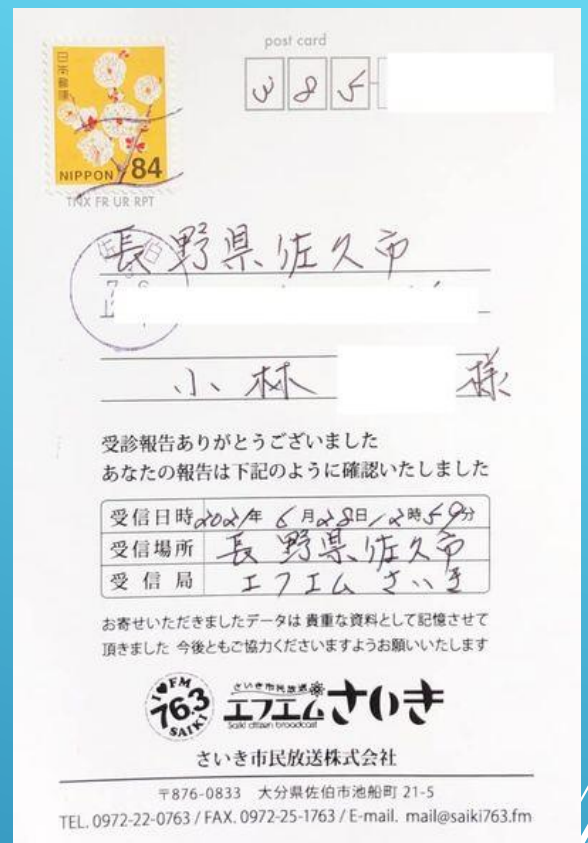 post card
385
日本郵便
NIPPON 84
TNX FR UR RPT
長野県佐久市
佐伯
小林 様
受診報告ありがとうございました
あなたの報告は下記のように確認いたしました
受信日時 2021年 6月28日 12時59分
受信場所 長野県佐久市
受信局 エフエムさいき
お寄せいただきましたデータは 貴重な資料として記憶させて
頂きました 今後ともご協力くださいますようお願いいたします
I ♥ FM 76.3 SAIKI
さいき市民放送
エフエムさいき
Saiki citizen broadcast
さいき市民放送株式会社
〒876-0833 大分県佐伯市池船町 21-5
TEL. 0972-22-0763 / FAX. 0972-25-1763 / E-mail. mail@saiki763.fm